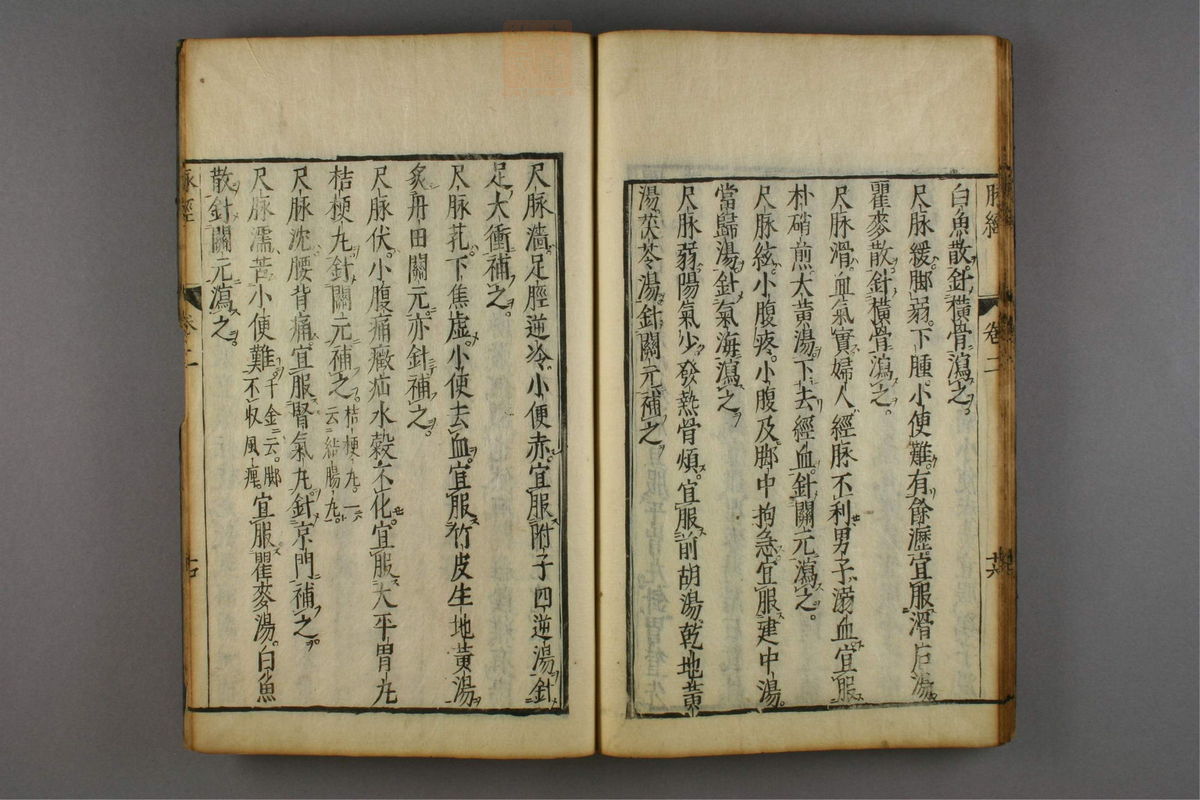 脉經 卷二
白魚散。針橫骨瀉之。
尺脉緩。脚弱。下腫。小便難。有餘瀝。宜服滑石湯
瞿麥散。針橫骨瀉之。
尺脉滑。血氣實。婦人經脉不利。男子溺血。宜服
朴硝煎。大黃湯。下去經血。針關元瀉之。
尺脉弦。小腹疼。小腹及脚中拘急。宜服建中湯。
當歸湯。針氣海瀉之
尺脉弱。陽氣少。發熱骨煩。宜服前胡湯。乾地黃
湯。茯苓湯。針關元補之
尺脉濇。足脛逆冷。小便赤。宜服附子四逆湯。針
足大衝補之。
尺脉芤。下焦虛。小便去血。宜服竹皮生地黃湯
炙丹田關元。亦針補之。
尺脉伏。小腹痛。癥疝。水穀不化。宜服大平胃丸
桔梗丸。針關元補之。桔梗丸。一
云結腸丸。
尺脉沈。腰背痛。宜服腎氣丸。針京門補之。
尺脉濡。苦小便難。千金云。脚
不収風痺。宜服瞿麥湯。白魚
散。針關元瀉之。
脉經 卷二